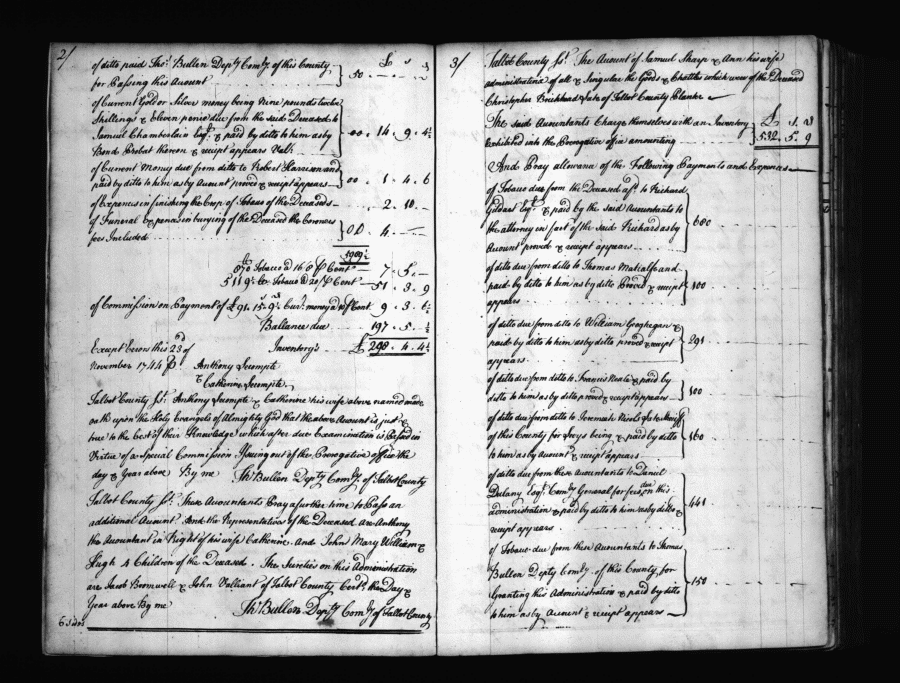 2/
£ s d
of ditto paid Thos. Bullen Depty Comry of this County
for Passing this Account 50
of Current Gold or Silver money being Nine pounds twelve
Shillings & Eleven pence due from the said Deceased to
Samuel Chamberlain Esqr. & paid by ditto to him as by
Bond Probat thereon & receipt appears Vall. 00 . 14 . 9 . 4½
of Current Money due from ditto to Robert Harrison and
paid by ditto to him as by Account proved & receipt appears 00 . 1 . 4 . 6
of Expences in finishing the Crop of Tobacco of the Deceaseds 2 . 10
of Funeral Expences in burying of the Deceased the Coroners
fees Included 00 4
1909½
870 Tobacco @ 16/8 P Cent 7 . 5
5119½ Tobacco @ 20/ P Cent 51 . 3 . 9
of Commission on Payment of £91 . 15 . 9½ Curt. money @ 10 P Cent 9 . 3 . 6½
Ballance due 197 . 5 . ½
Inventory's £ 298 . 4 . 4½
Except Errors this 23d of
November 1744 P Anthony Lecompte
& Catherine Lecompte
Talbot County Ss. Anthony Lecompte & Catherine his wife above named made
oath upon the Holy Evangels of Almighty God that the above Account is just &
true to the best of their Knowledge which after due Examination is Passed in
Virtue of a Special Commission Issuing out of the Prerogative office the
day & Year above By me Thos. Bullen Depty Comry. of Talbot County
Talbot County Ss. These Accountants Pray a further time to Pass an
additional Account. And the Representatives of the Deceased are Anthony
the Accountant in Right of his wife Catherine. And John Mary William &
Hugh 4 Children of the Deceased. The Sureties on this Administration
are Jacob Bromwell & John Valliant of Talbot County Certd. the Day &
Year above By me Thos. Bullen Depty Comry. of Talbot County
6 Sides
3/
Talbot County Ss. The Account of Samuel Sharp & Ann his wife
administratrix of all & Singular the Goods & Chattles which were of the Deceased
Christopher Brickhard late of Talbot County Planter
The said Accountants Charge themselves with an Inventory £ s d
Exhibited into the Prerogative office amounting 532 . 5 . 9
And Pray allowance of the Following Payments and Expences
of Tobacco due from the Deceased afsd. to Richard
Gildart Esqr. & paid by the said Accountants to
the Attorney in fact of the said Richard as by
Account proved & receipt appears 680
of ditto due from ditto to Thomas and
paid by ditto to him as by ditto Proved & receipt 100
appears
of ditto due from ditto to William Geoghegan &
paid by ditto to him as by ditto proved & receipt 291
appears
of ditto due from ditto to Francis Neale & paid by
ditto to him as by ditto proved & receipt appears 100
of ditto due from ditto to Jeremiah Nicols late Sheriff
of this County for Levys being & paid by ditto 160
to him as by Account & receipt appears
of ditto due from these Accountants to Daniel
Dulany Esqr. Comry. General for fees due on this
administration & paid by ditto to him as by ditto & 441
receipt appears
of Tobacco due from these Accountants to Thomas
Bullen Depty Comry. of this County for
Granting this Administration & paid by ditto 150
to him as by Account & receipt appears